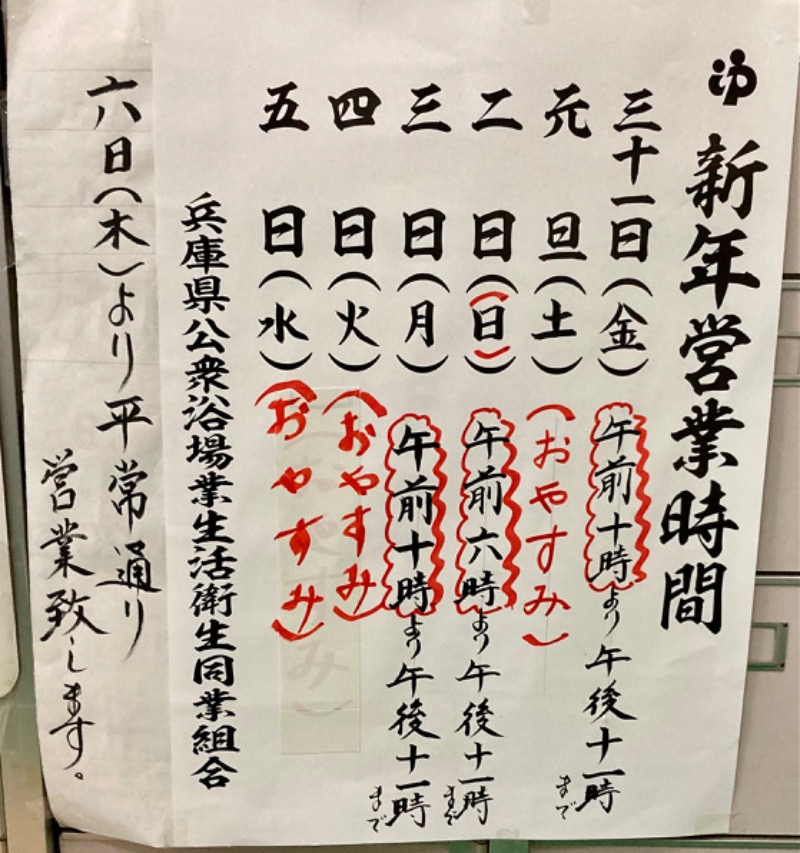 ゆ 新年営業時間
三十一日(金) 午前十時より午後十一時まで
元旦(土) (おやすみ)
二日(日) 午前六時より午後十一時まで
三日(月) 午前十時より午後十一時まで
四日(火) (おやすみ)
五日(水) (おやすみ)
兵庫県公衆浴場業生活衛生同業組合
六日(木)より平常通り
営業致します。